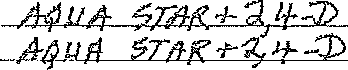 AQUA STAR + 2,4-D
AQUA STAR + 2,4-D